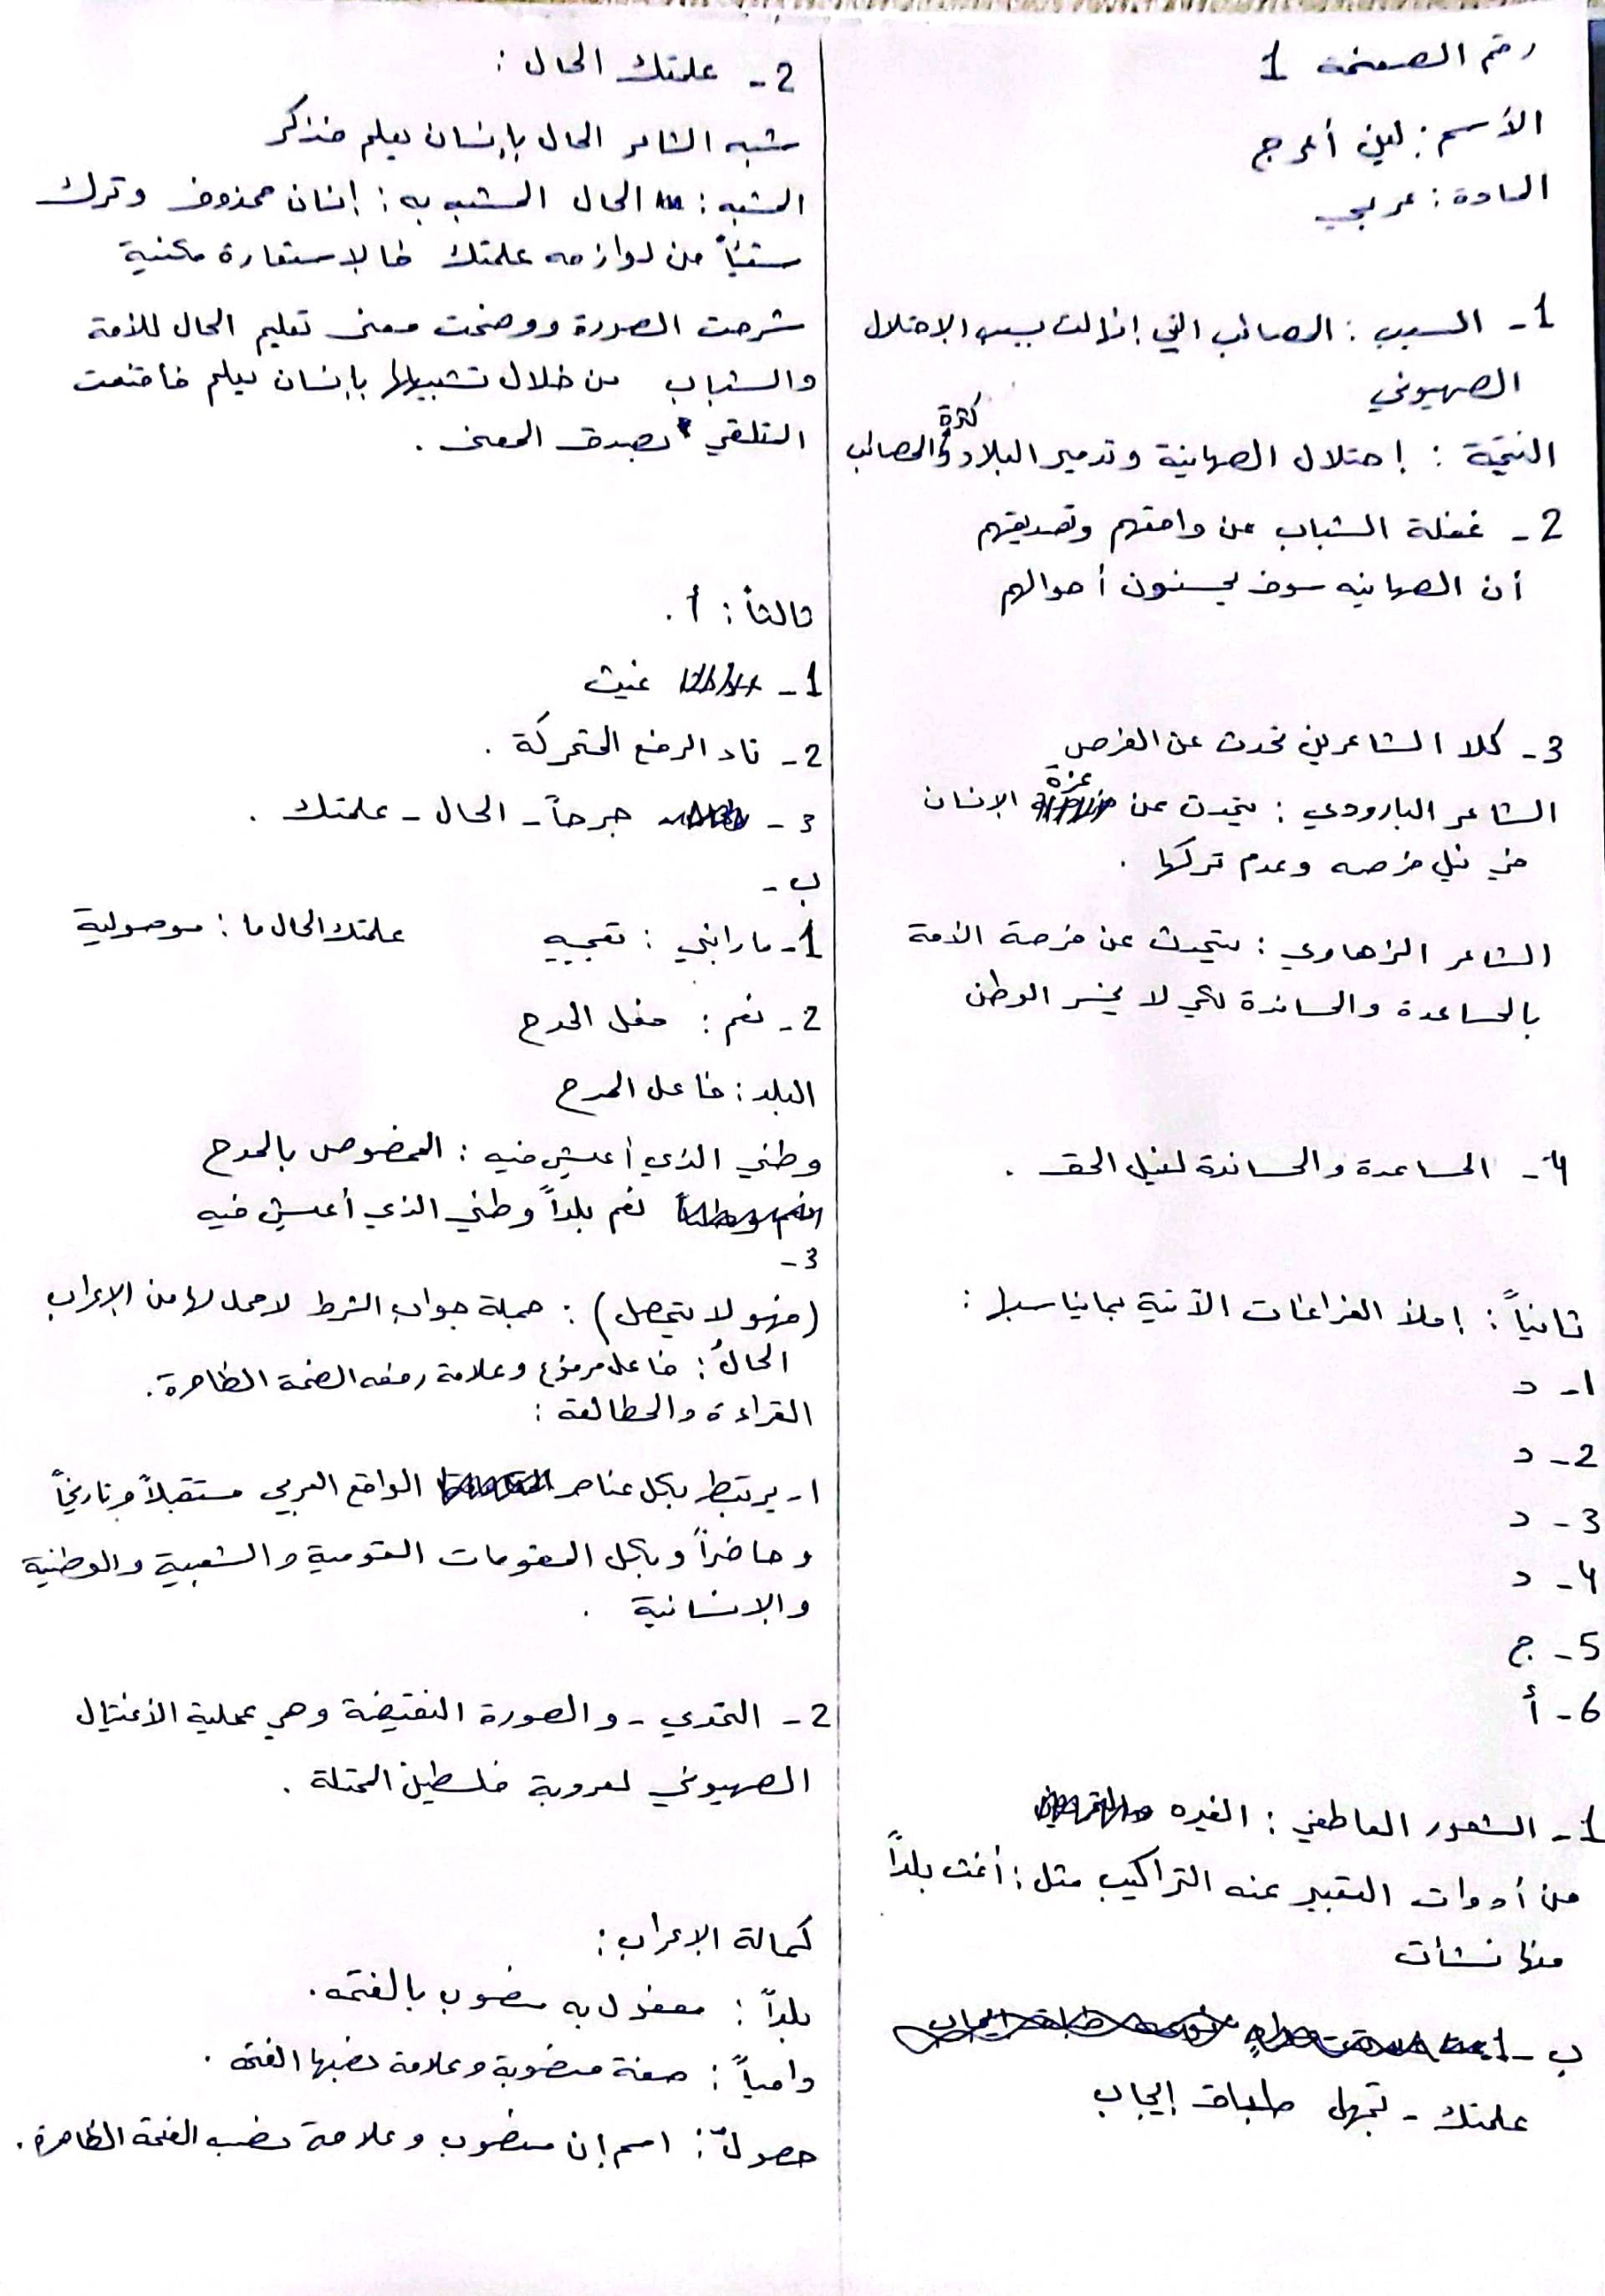 رقم الصفحة 1
الأسم: لين أعرج
المادة: عربي
1- السبب: المصائب التي إنهالت بسبب الاحتلال
الصهيوني
النتيجة: إحتلال الصهاينة وتدمير البلاد وكثرة المصائب
2- غفلة الشباب عن وامتهم وتصديقهم
أن الصهاينه سوف يحسنون أحوالهم
3- كلا الشاعرين تحدث عن الفرص
الشاعر البارودي: يتحدث عن عزة الانسان
في نيل فرصه وعدم تركها .
الشاعر الزهاوي: يتحدث عن فرصة الأمة
بالمساعدة والمساندة لكي لا يخسر الوطن
4- المساعدة والمساندة لنيل الحق .
ثانياً: إملأ الفراغات الآتية بما يناسبها:
1- د
2- د
3- د
4- د
5- ج
6- أ
1- الشعور العاطفي: الغيره
من أدوات التعبير عنه التراكيب مثل: أغث بلداً
منها نشأت
ب -
علمتك - تجهل طباق إيجاب
2- علمتك الحال:
شبه الشاعر الحال بإنسان يعلم فذكر
المشبه: الحال المشبه به: إنسان محذوف وترك
شيئاً من لوازمه علمتك فالاستعارة مكنية
شرحت الصورة ووضحت معنى تعليم الحال للأمة
والشباب من خلال تشبيهها بإنسان يعلم فأقنعت
المتلقي بصدق المعنى .
ثالثاً: أ.
1- غيث
2- تاء الرفع المتحركة .
3- جرحاً - الحال - علمتك .
ب -
1- ما رابني: تعجبيه علمتك الحال ما: موصولية
2- نعم: فعل المدح
البلد: فاعل المدح
وطني الذي أعيش فيه: المخصوص بالمدح
نعم بلداً وطني الذي أعيش فيه
3-
(فهو لا يتحصل): جملة جواب الشرط لا محل لها من الإعراب
الحالُ: فاعل مرفوع وعلامة رفعه الضمة الظاهرة.
القراءة والمطالعة:
1- يرتبط بكل عناصر الواقع العربي مستقبلاً وتاريخاً
وحاضراً وبكل المقومات القومية والشعبية والوطنية
والانسانية .
2- التحدي - والصورة النقيضة وهي عملية الأغتيال
الصهيوني لعروبة فلسطين المحتلة .
كمالة الإعراب:
بلداً: مفعول به منصوب بالفتحه.
وامياً: صفة منصوبة وعلامة نصبها الفتحه .
حصولَ: اسم إن منصوب وعلامة نصبه الفتحة الظاهرة.